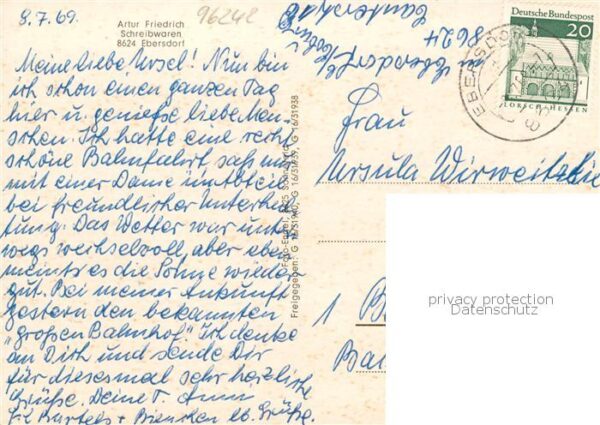 8.7.69.
96242
Artur Friedrich
Schreibwaren
8624 Ebersdorf
Meine liebe Ursel! Nun bin
ich schon einen ganzen Tag
hier u. genieße liebe Men-
schen. Ich hatte eine recht
schöne Bahnfahrt, saß nur
mit einer Dame im Abteil
bei freundlicher Unterhal-
tung. Das Wetter war unter-
wegs wechselvoll, aber eben
meint es die Sonne wieder
gut. Bei meiner Ankunft
gestern den bekannten
"großen Bahnhof." Ich denke
an Dich und sende Dir
für diesesmal sehr herzliche
Grüße. Deine T. Anni
Bienchen lb. Grüße.
8624
Ebersdorf
Freigegeben: G 16/31940, G 16/31939, G 16/31938
Deutsche Bundespost
20
LORSCH · HESSEN
EBERSDORF
Frau
Ursula Wirweitzkie
1 B
Ba
privacy protection
Datenschutz